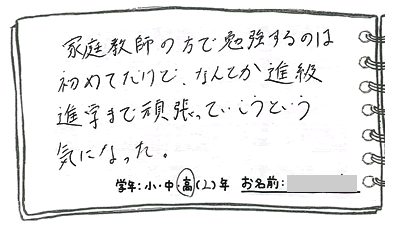 家庭教師の方で勉強するのは
初めてだけど、なんとか進級
進学まで頑張っていこうという
気になった。
学年:小・中・高(2)年 お名前: